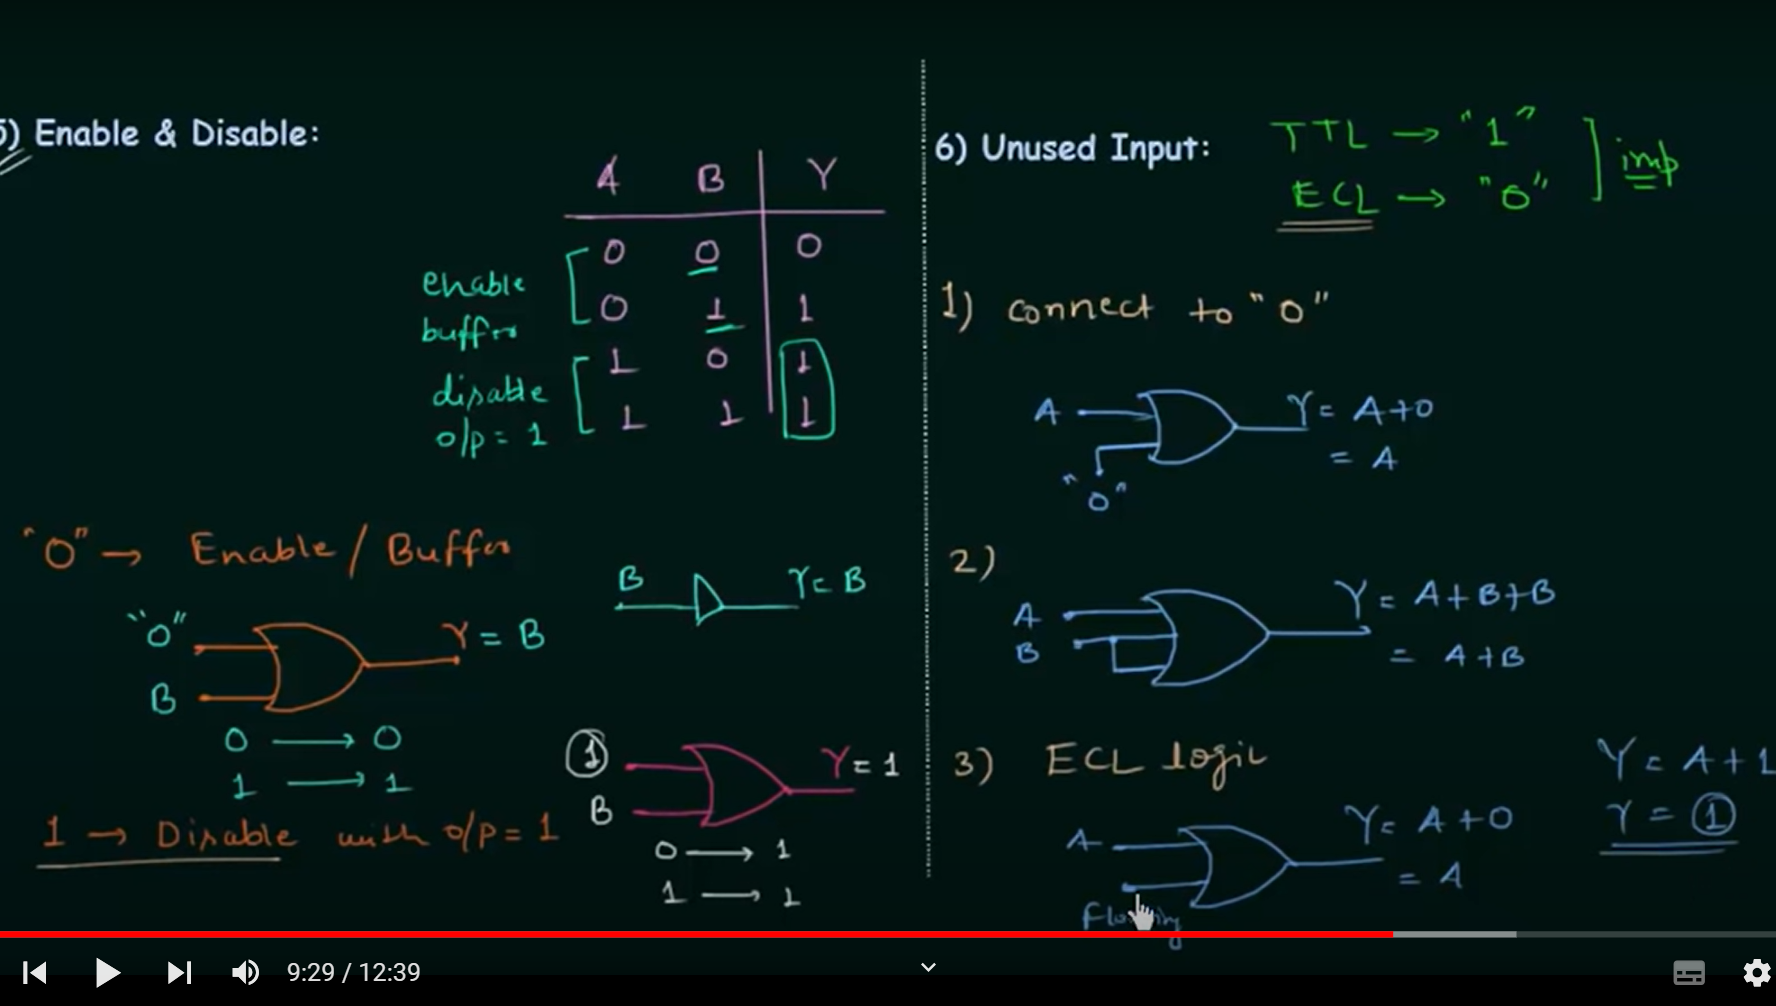 5) Enable & Disable:
A B Y
0 0 0
0 1 1
1 0 1
1 1 1
enable
buffer
disable
o/p = 1
"0" → Enable / Buffer
"0"
B
Y = B
0 → 0
1 → 1
B Y = B
1 → Disable with o/p = 1
1
B
Y = 1
0 → 1
1 → 1
6) Unused Input:
TTL → "1"
ECL → "0"
] imp
1) connect to "0"
A
"0"
Y = A+0
= A
2)
A
B
Y = A+B+B
= A+B
3) ECL logic
A
Floating
Y = A+0
= A
Y = A+1
Y = 1
9:29 / 12:39